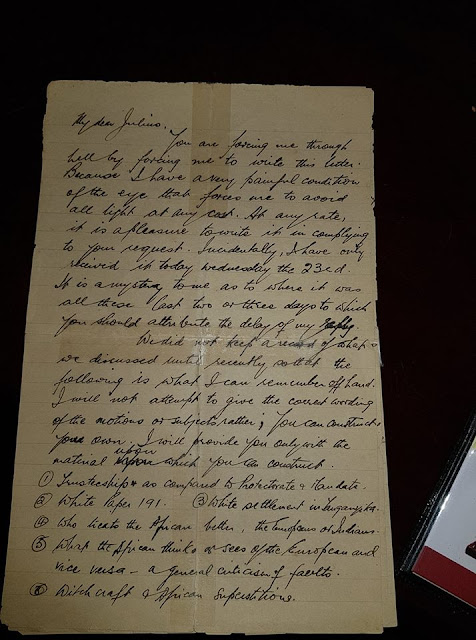 My dear Julius,
You are forcing me through
hell by forcing me to write this letter.
Because I have a very painful condition
of the eye that forces me to avoid
all light at any cost. At any rate,
it is a pleasure to write it in complying
to your request. Incidentally, I have only
received it today wednesday the 23rd.
It is a mystery to me as to where it was
all these last two or three days to which
you should attribute the delay of my reply.
We did not keep a record of what
we discussed until recently, so that the
following is what I can remember off hand.
I will not attempt to give the correct wording
of the motions or subjects rather; you can construct
your own. I will provide you only with the
material upon which you can construct.
① Trusteeship as compared to Protectorate & Mandate.
② White Paper 191. ③ White settlement in Tanganyika.
④ Who treats the African better, the Europeans or Indians.
⑤ What the African thinks or sees of the European and
vice versa – a general criticism of faults.
⑥ Witchcraft & African Superstitions.